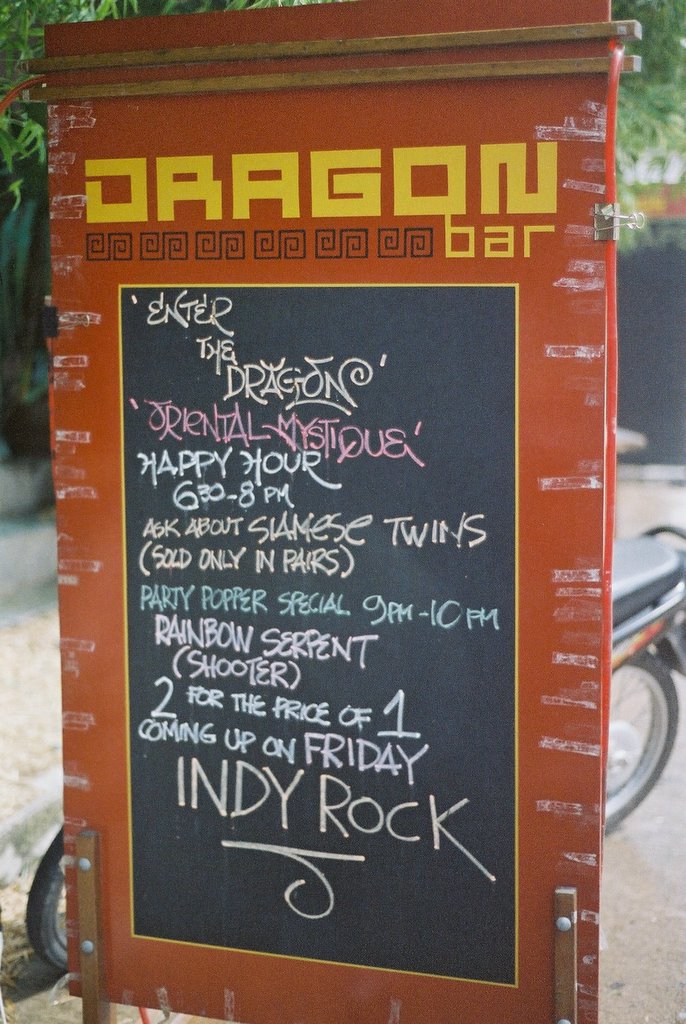 DRAGON
bar
'ENTER
THE
DRAGON'
'ORIENTAL MYSTIQUE'
HAPPY HOUR
630-8 PM
ASK ABOUT SIAMESE TWINS
(SOLD ONLY IN PAIRS)
PARTY POPPER SPECIAL 9PM-10PM
RAINBOW SERPENT
(SHOOTER)
2 FOR THE PRICE OF 1
COMING UP ON FRIDAY
INDY ROCK